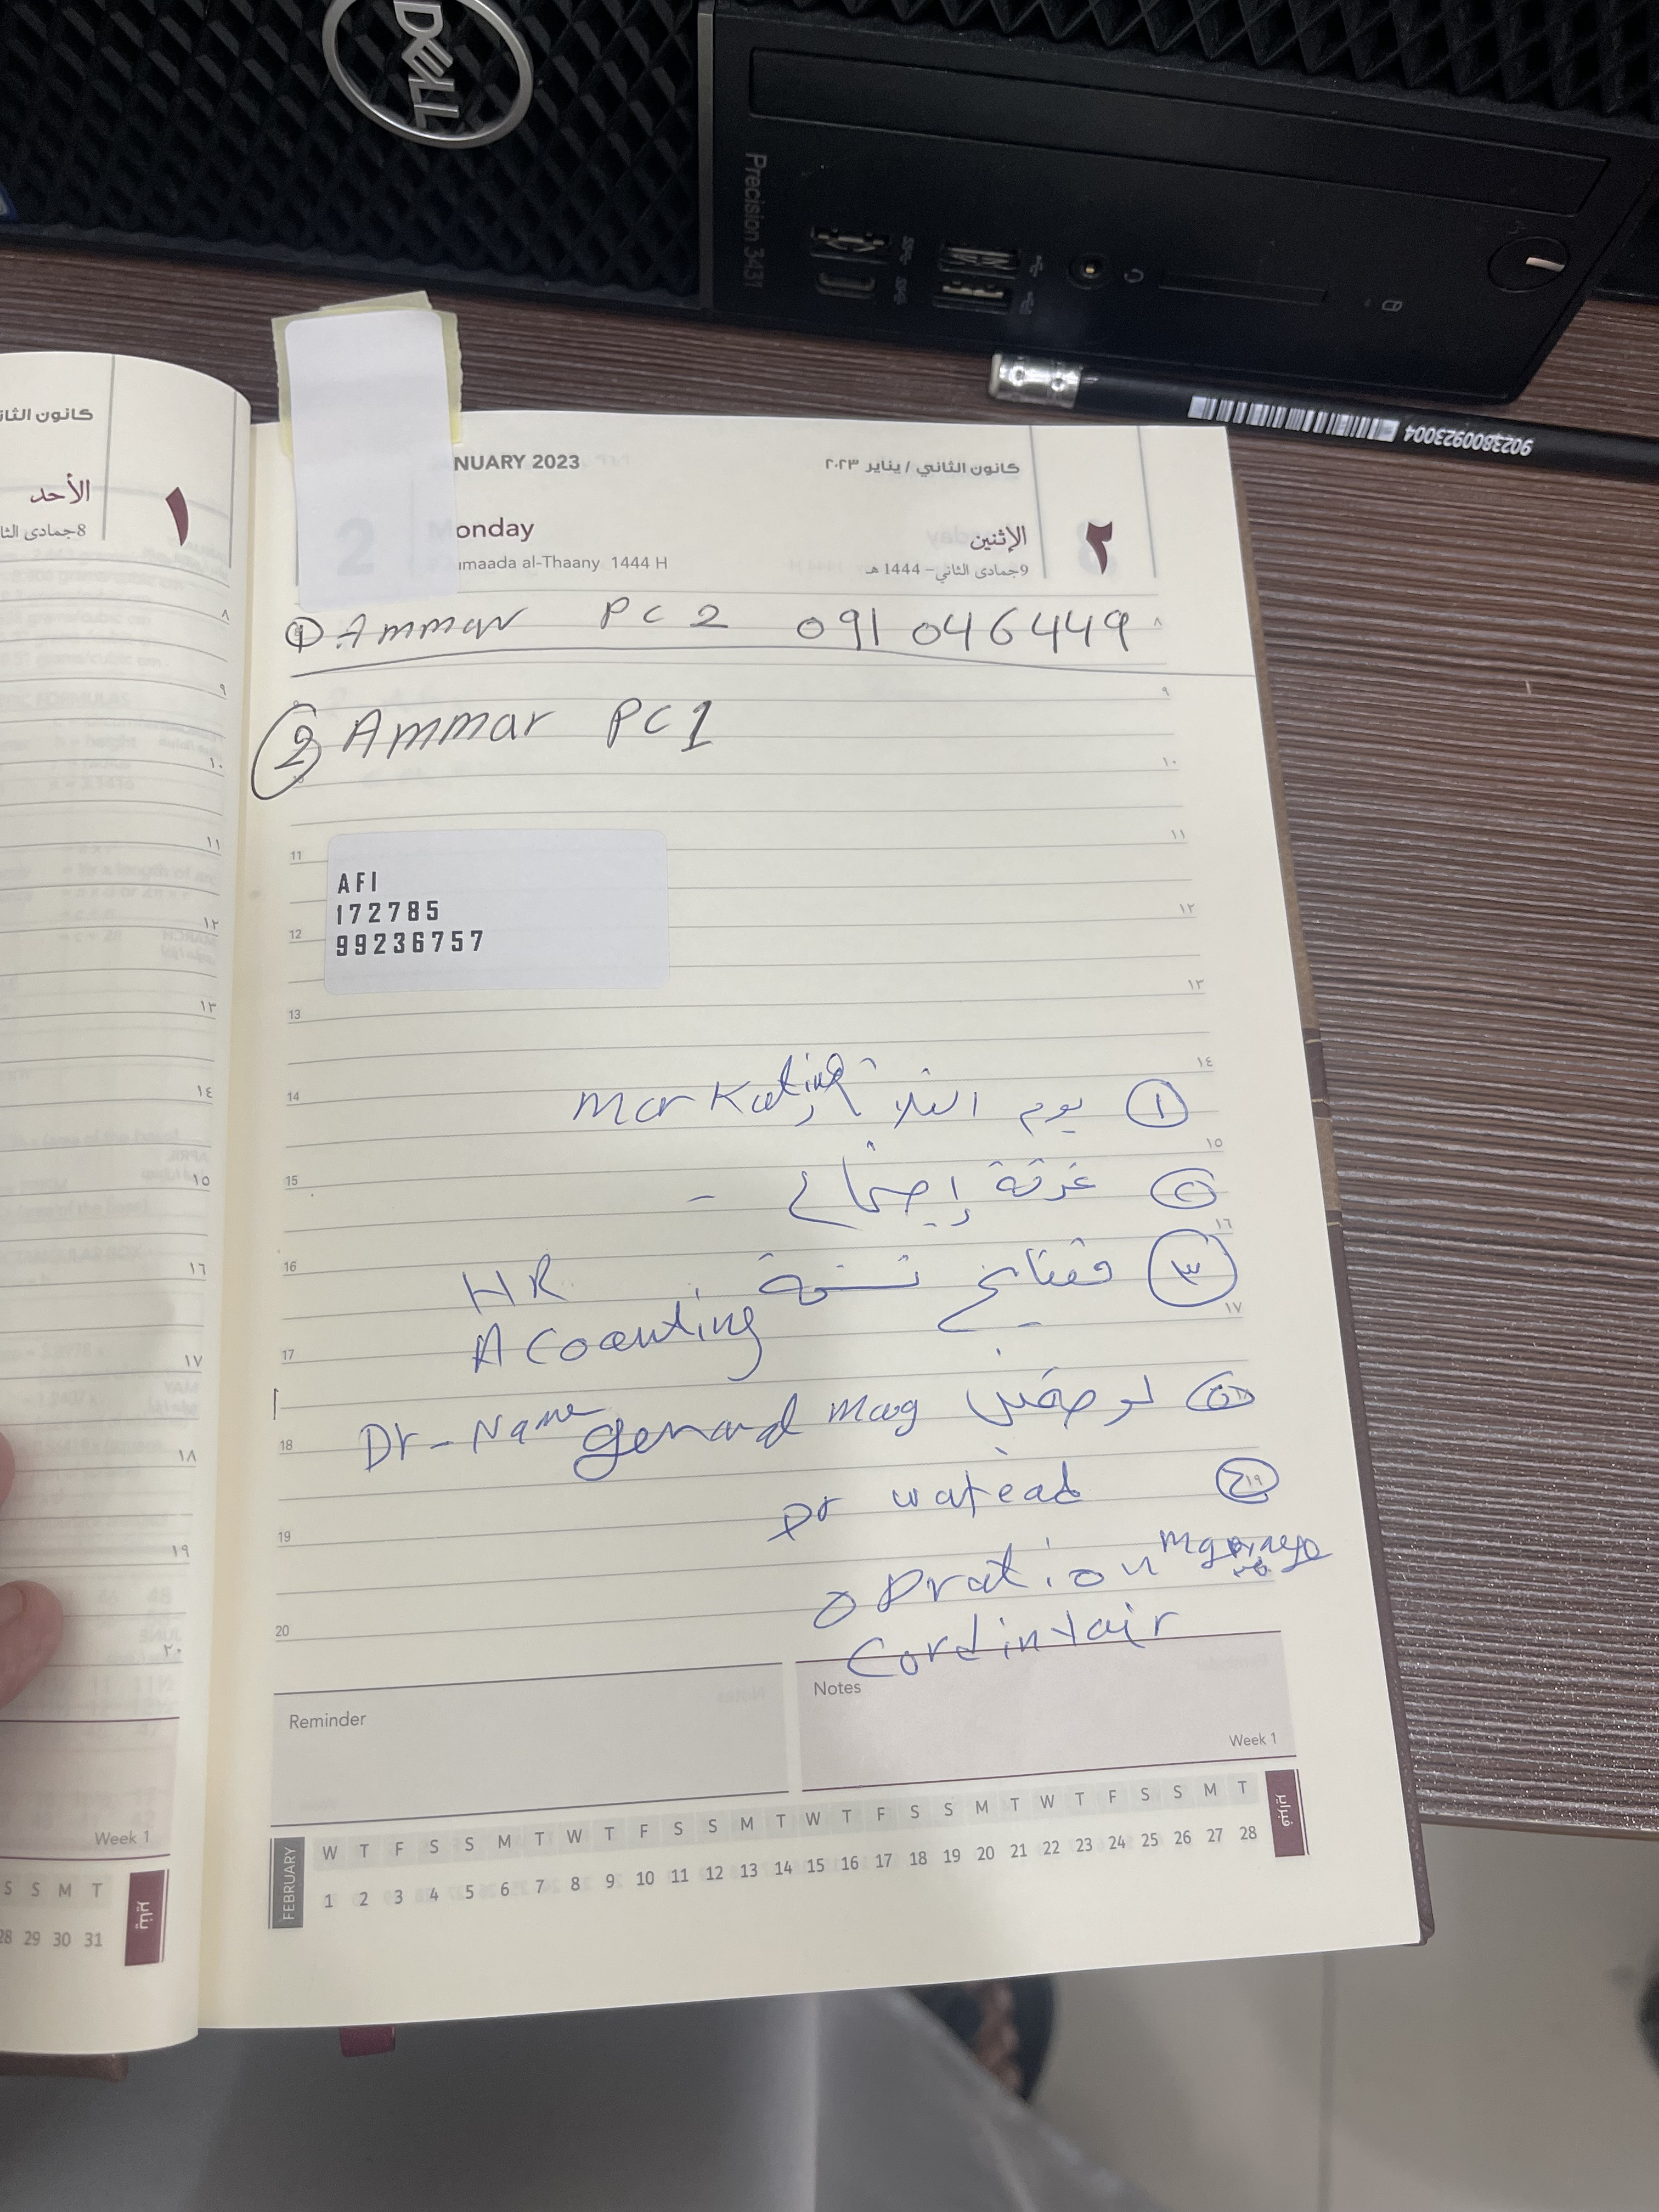 DELL
Precision 3431
9023800923004
كانون الثاني / يناير ٢٠٢٣
NUARY 2023
الأحد
١
8جمادى
2
onday
الإثنين
٢
maada al-Thaany 1444 H
9جمادى الثاني – 1444 هـ
① Ammar PC 2 091 046449
② Ammar PC1
AFI
172785
99236757
① يوم الثلاثاء Marketing
② غرفة إجتماع -
③ مفتايح نسخة HR
Acoounting
Dr-Name general mag
④
Dr wafead
opration
Cordintair
Reminder
Notes
Week 1
FEBRUARY
W T F S S M T W T F S S M T W T F S S M T W T F S S M T
1 2 3 4 5 6 7 8 9 10 11 12 13 14 15 16 17 18 19 20 21 22 23 24 25 26 27 28
فبراير
Week 1
S S M T
28 29 30 31
يناير